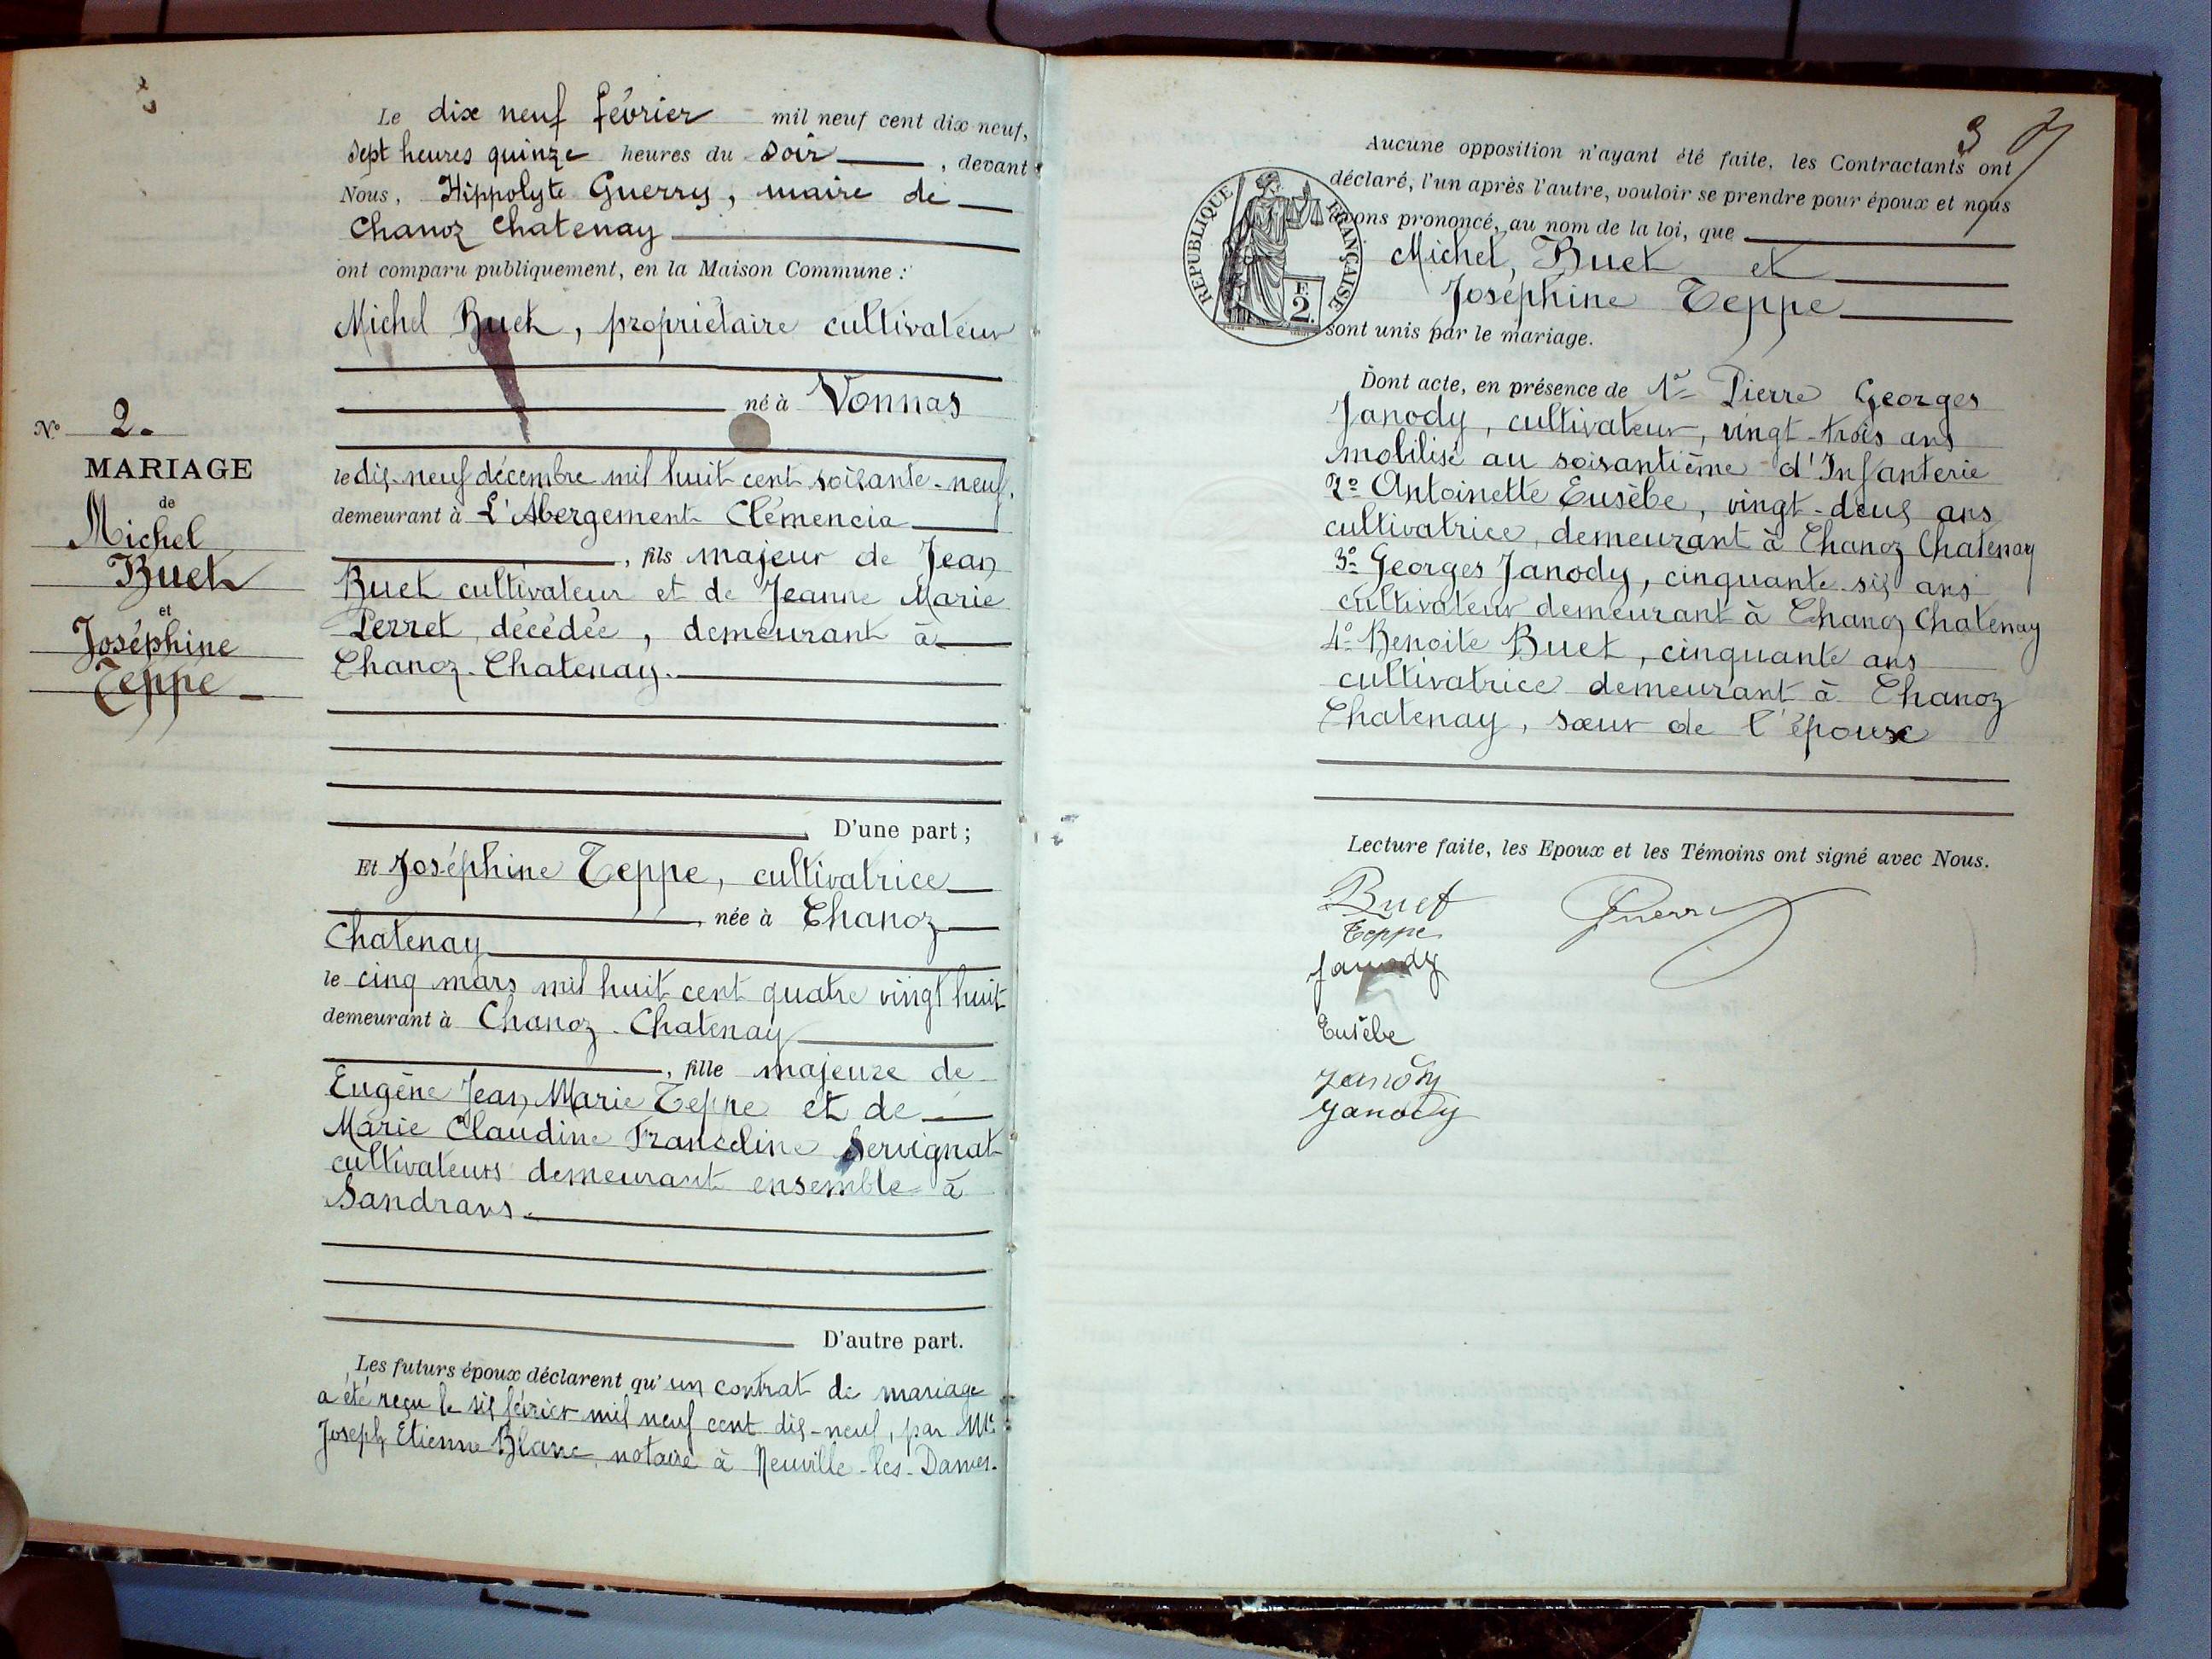 Le dix neuf février mil neuf cent dix-neuf,
sept heures quinze heures du soir, devant
Nous, Hippolyte Guerry, maire de
Chanoz Chatenay
ont comparu publiquement, en la Maison Commune :
Michel Buet, propriétaire cultivateur
né à Vonnas
le dix-neuf décembre mil huit cent soixante-neuf,
demeurant à L'Abergement Clémencia
, fils majeur de Jean
Buet cultivateur et de Jeanne Marie
Perret décédée, demeurant à
Chanoz-Chatenay.
D'une part ;
Et Joséphine Teppe, cultivatrice
, née à Chanoz
Chatenay
le cinq mars mil huit cent quatre vingt huit
demeurant à Chanoz-Chatenay
, fille majeure de
Eugène Jean Marie Teppe et de
Marie Claudine Franceline Servignat
cultivateurs demeurant ensemble à
Sandrans.
D'autre part.
Les futurs époux déclarent qu'un contrat de mariage
a été reçu le six février mil neuf cent dix-neuf, par Me
Joseph Etienne Blanc, notaire à Neuville-les-Dames.
No 2.
MARIAGE
de
Michel
Buet
et
Joséphine
Teppe
3
Aucune opposition n'ayant été faite, les Contractants ont
déclaré, l'un après l'autre, vouloir se prendre pour époux et nous
avons prononcé, au nom de la loi, que
Michel, Buet et
Joséphine Teppe
sont unis par le mariage.
REPUBLIQUE FRANÇAISE
F.
2.
Dont acte, en présence de 1o Pierre Georges
Janody, cultivateur, vingt-trois ans
mobilisé au soixantième d'Infanterie
2o Antoinette Eusèbe, vingt-deux ans
cultivatrice, demeurant à Chanoz Chatenay
3o Georges Janody, cinquante-six ans
cultivateur demeurant à Chanoz Chatenay
4o Benoite Buet, cinquante ans
cultivatrice demeurant à Chanoz
Chatenay, sœur de l'épouse
Lecture faite, les Epoux et les Témoins ont signé avec Nous.
Buet Guerry
Teppe
Janody
Eusèbe
Janody
Janody